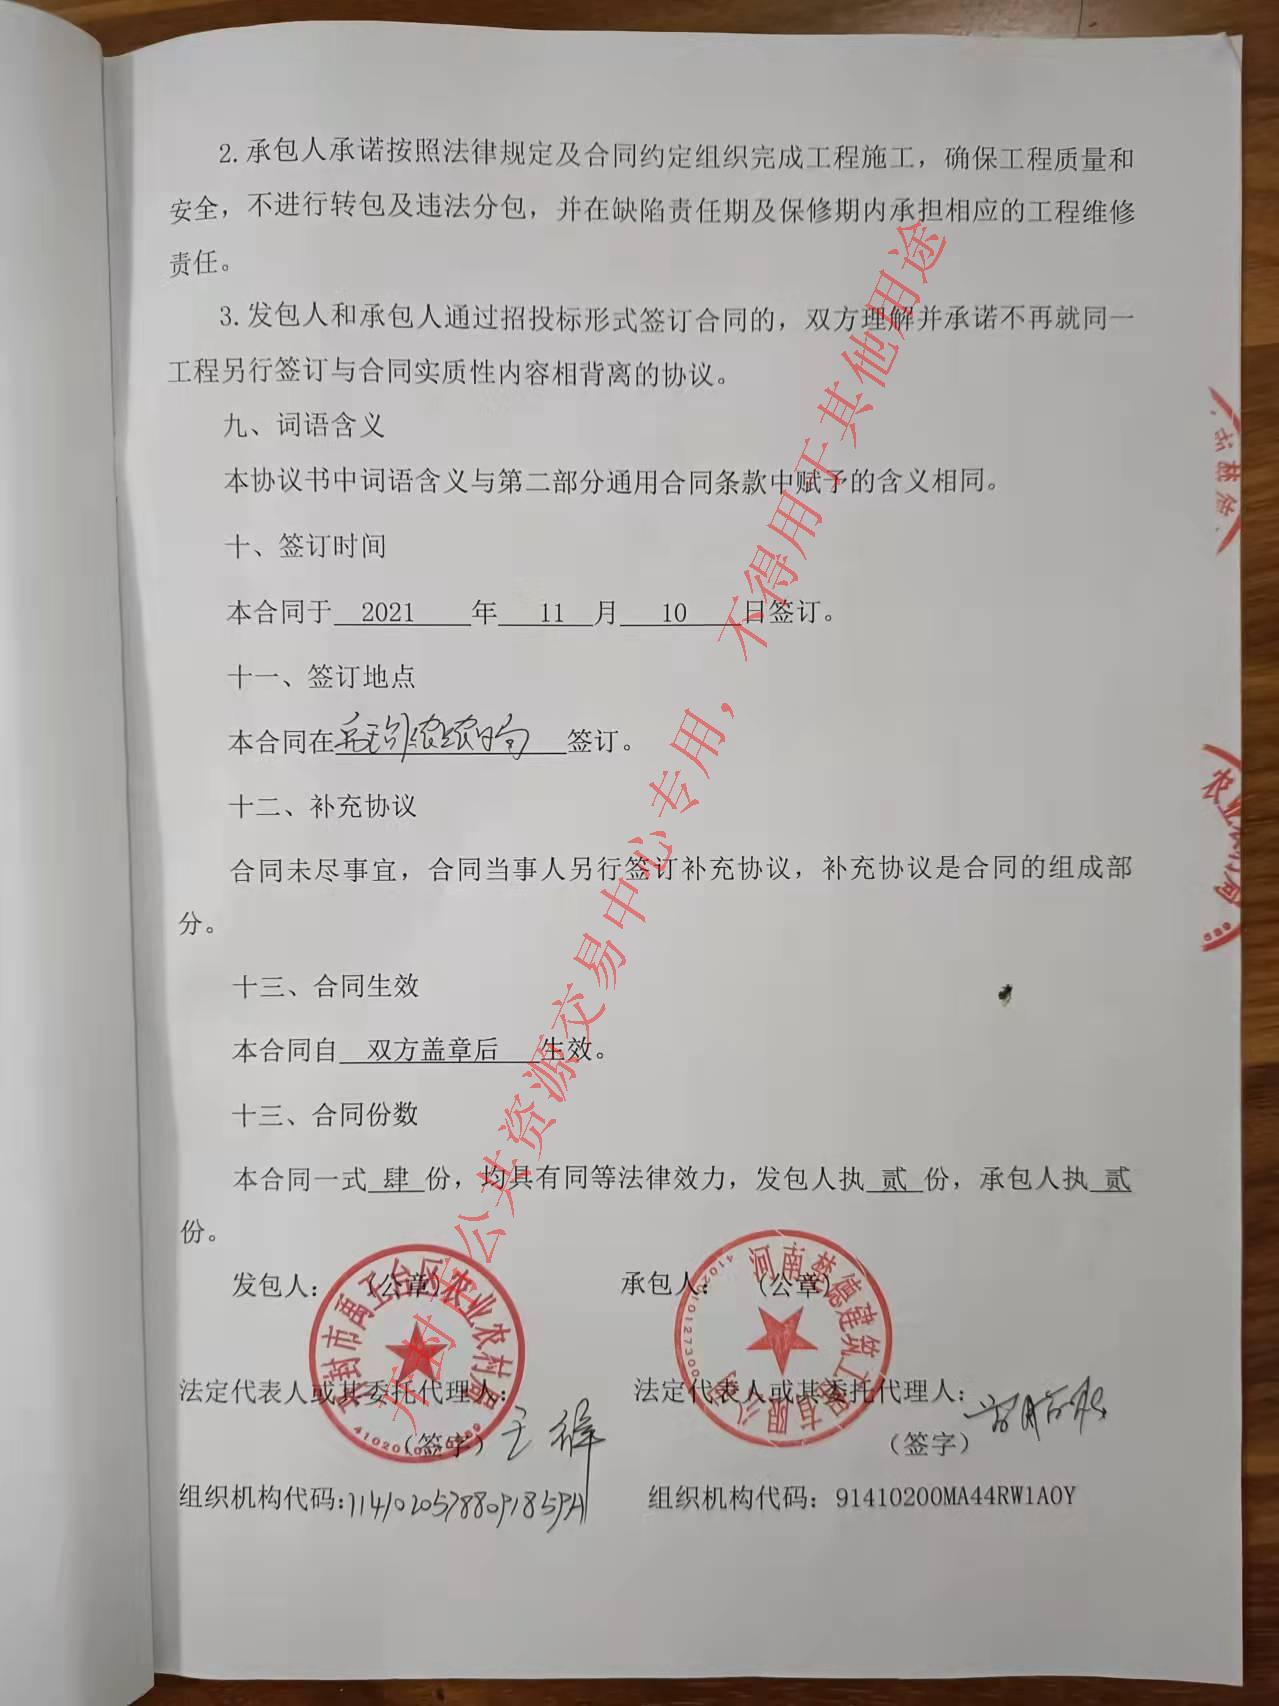 2.承包人承诺按照法律规定及合同约定组织完成工程施工，确保工程质量和
安全，不进行转包及违法分包，并在缺陷责任期及保修期内承担相应的工程维修
责任。
3.发包人和承包人通过招投标形式签订合同的，双方理解并承诺不再就同一
工程另行签订与合同实质性内容相背离的协议。
九、词语含义
本协议书中词语含义与第二部分通用合同条款中赋予的含义相同。
十、签订时间
本合同于 2021 年 11 月 10 日签订。
十一、签订地点
本合同在 签订。
十二、补充协议
合同未尽事宜，合同当事人另行签订补充协议，补充协议是合同的组成部
分。
十三、合同生效
本合同自 双方盖章后 生效。
十三、合同份数
本合同一式 肆 份，均具有同等法律效力，发包人执 贰 份，承包人执 贰
份。
发包人：（公章） 承包人：（公章）
开封市禹王台区农业农村局
河南梦德建筑工程有限公司
法定代表人或其委托代理人： 法定代表人或其委托代理人：
（签字） （签字）
组织机构代码: 组织机构代码：91410200MA44RW1A0Y
开封市公共资源交易中心专用，不得用于其他用途
农业农村局